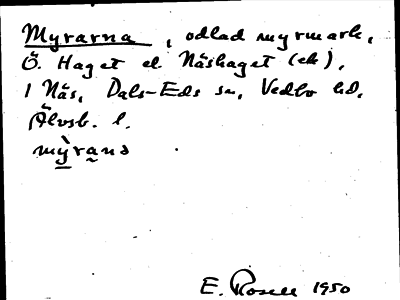 Myrarna, odlad myrmark,
Ö. Haget el. Näshaget (ek),
1 Näs, Dals-Eds sn, Vedbo hd,
Älvsb. l.
mỳrana
E. Rosell 1950